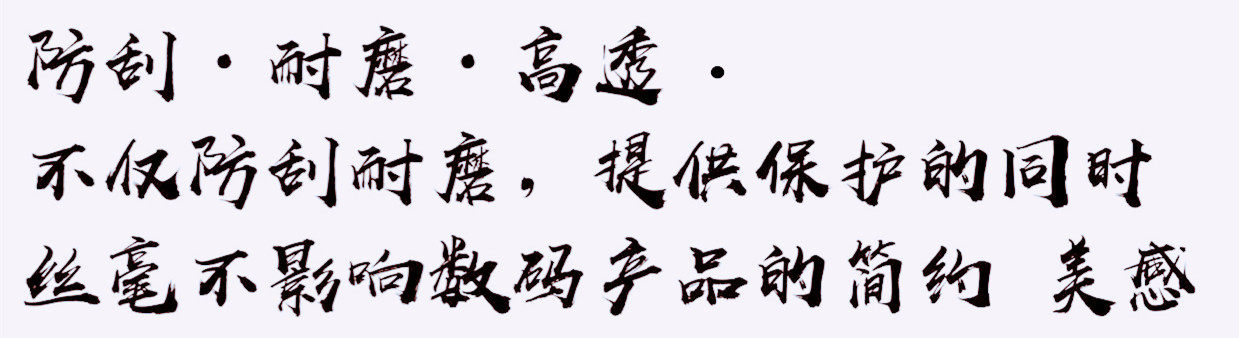 防刮·耐磨·高透·
不仅防刮耐磨，提供保护的同时
丝毫不影响数码产品的简约 美感